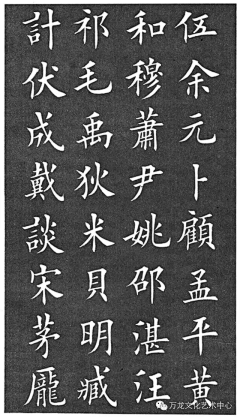 伍余元卜顧孟平黄
和穆蕭尹姚邵湛汪
祁毛禹狄米貝明臧
計伏成戴談宋茅龐
万龙文化艺术中心